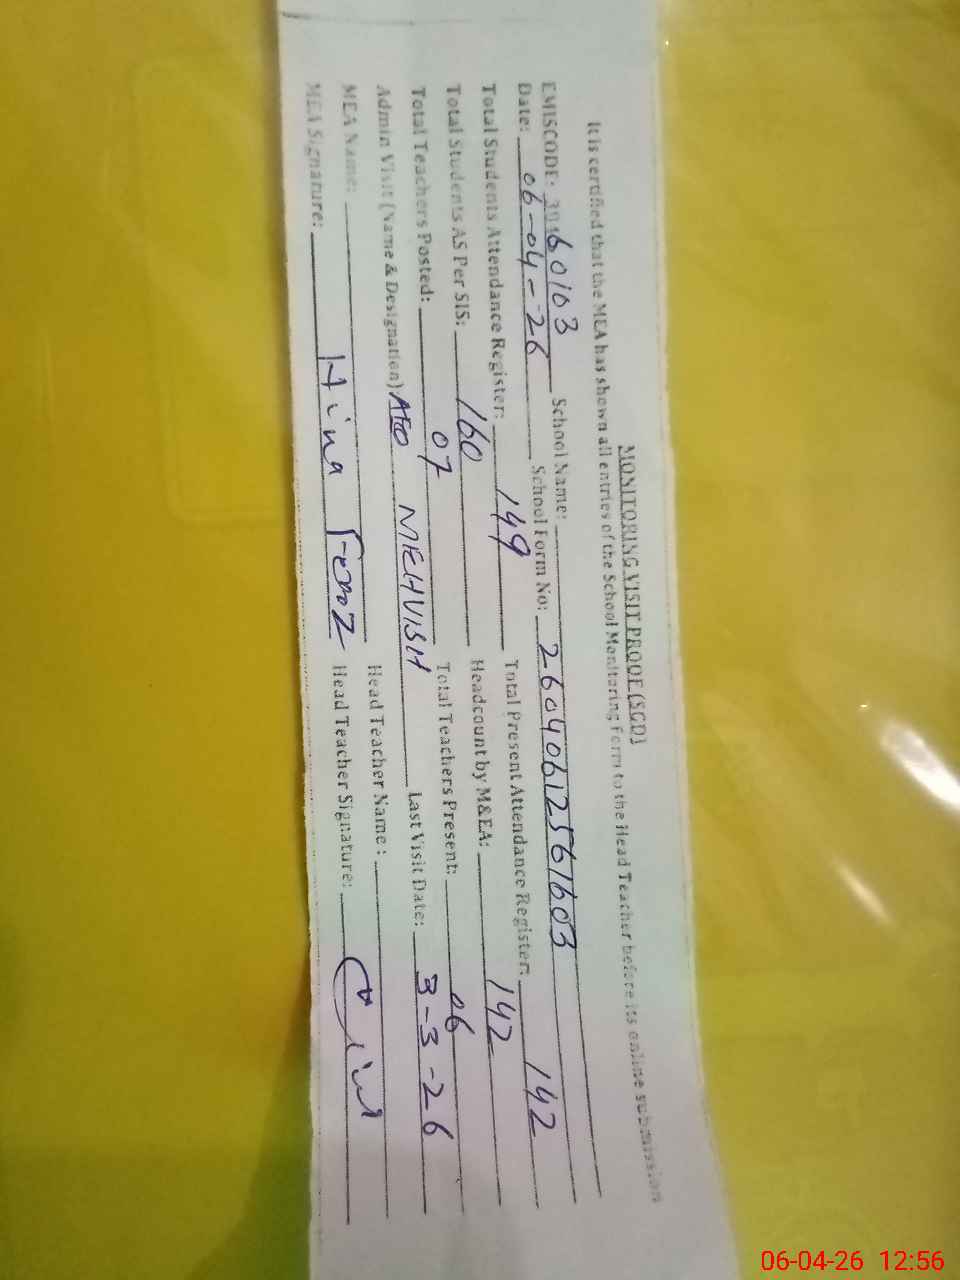 MONITORING VISIT PROOF (SGD)
It is certified that the MEA has shown all entries of the School Monitoring Form to the Head Teacher before its online submission
EMISCODE: 60103 School Name:
Date: 06-04-26 School Form No: 26040612561603
Total Students Attendance Register: 149 Total Present Attendance Register: 142
Total Students AS Per SIS: 160 Headcount by M&EA: 142
Total Teachers Posted: 07 Total Teachers Present: 06
Admin Visit (Name & Designation) AEO MEHVISH Last Visit Date: 3-3-26
MEA Name: Head Teacher Name :
MEA Signature: Hina Head Teacher Signature:
06-04-26 12:56